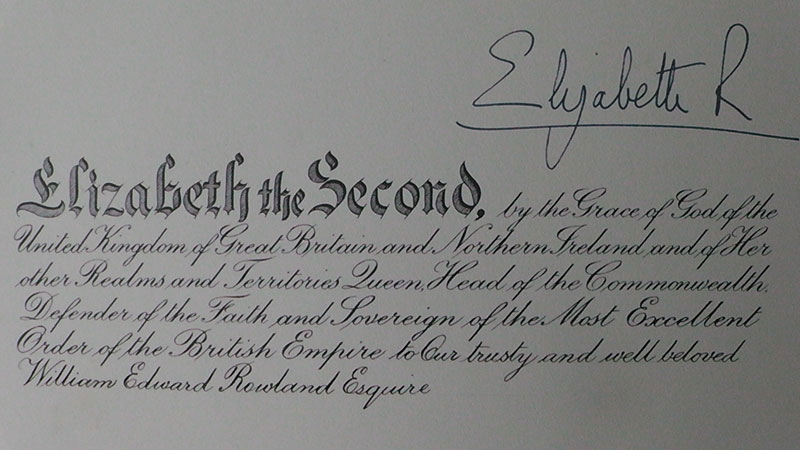 Elizabeth R
Elizabeth the Second, by the Grace of God of the
United Kingdom of Great Britain and Northern Ireland and of Her
other Realms and Territories Queen, Head of the Commonwealth,
Defender of the Faith and Sovereign of the Most Excellent
Order of the British Empire to Our trusty and well beloved
William Edward Rowland Esquire